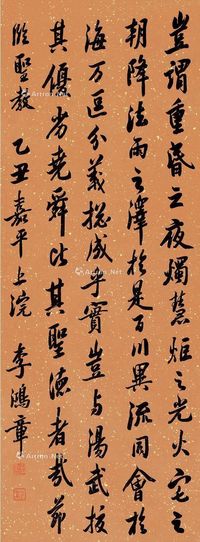 豈謂重昏之夜燭慧炬之光火宅之
朝降法雨之澤於是百川異流同會於
海万區分義揔成乎實豈与湯武挍
其優劣堯舜比其聖德者哉節
臨聖教 乙丑嘉平上浣 李鴻章